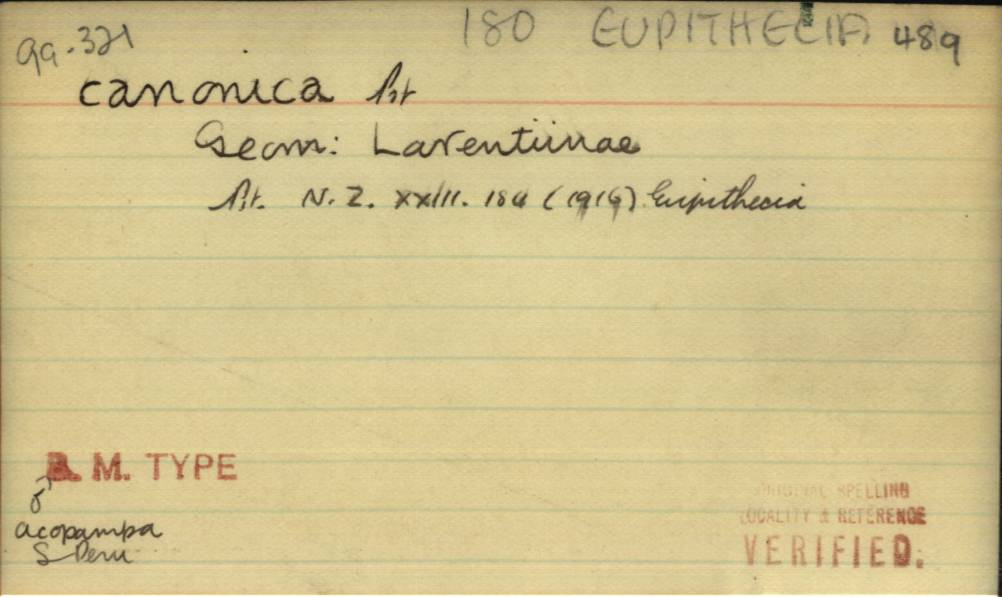 99.321 180 EUPITHECIA 489
canonica Prt
Geom: Larentiinae
Prt. N. Z. XXIII. 184 (1916) Eupithecia
B. M. TYPE
♂
acopampa
S Peru
ORIGINAL SPELLING
LOCALITY & REFERENCE
VERIFIED.